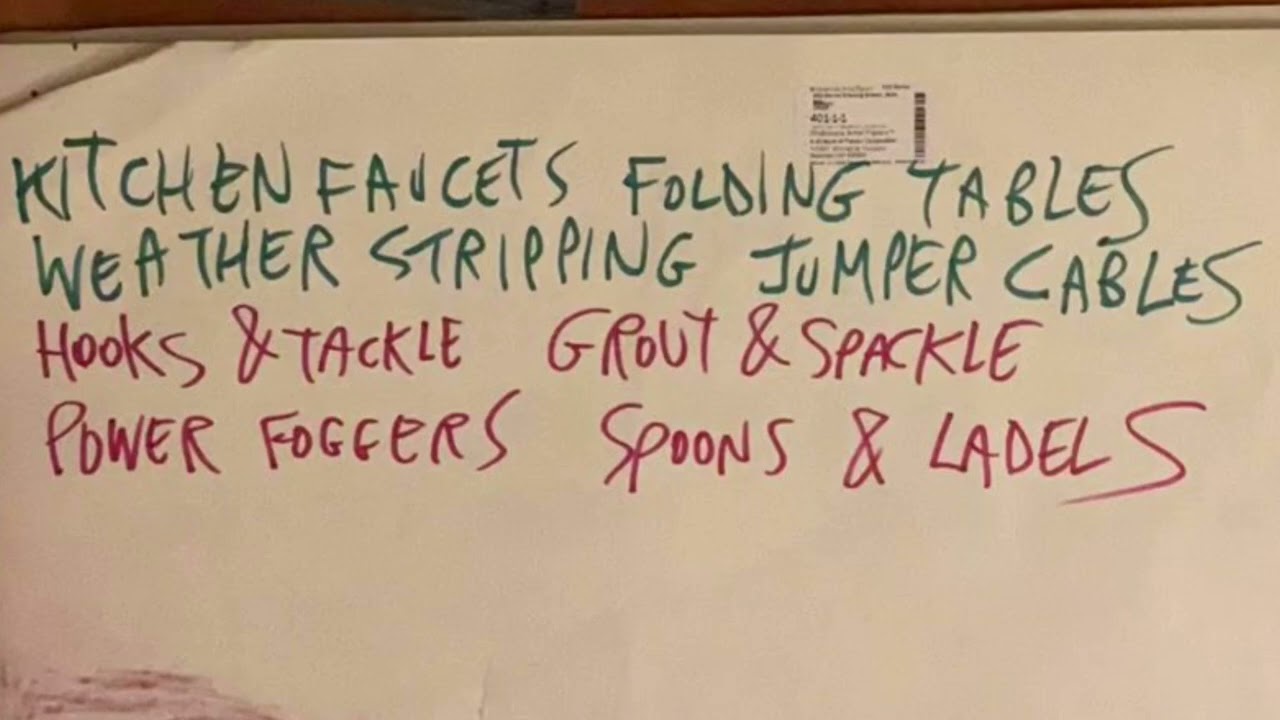 401-1-1
KITCHEN FAUCETS FOLDING TABLES
WEATHER STRIPPING JUMPER CABLES
HOOKS & TACKLE GROUT & SPACKLE
POWER FOGGERS SPOONS & LADELS